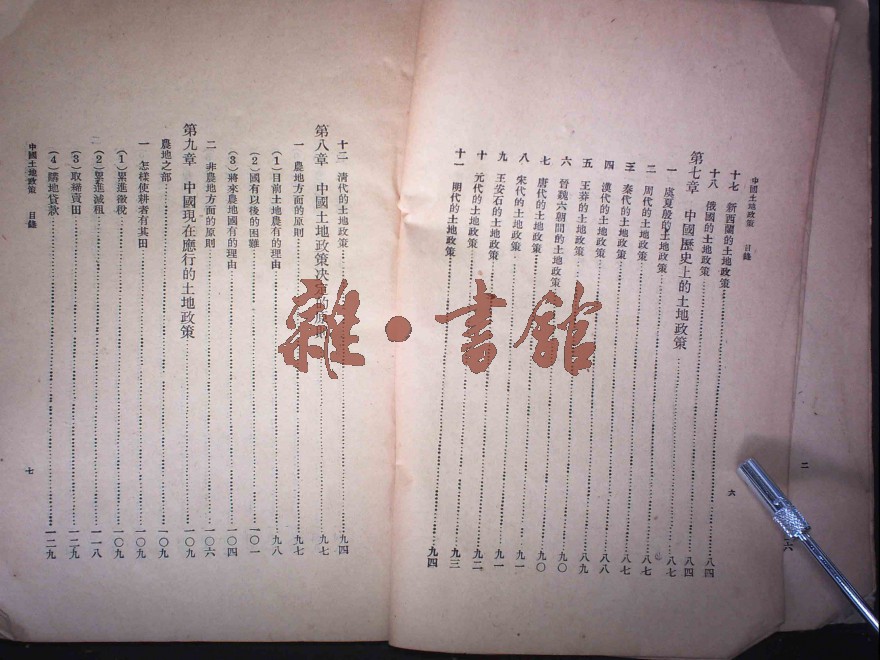 中國土地政策 目錄
十七 新西蘭的土地政策……八四
十八 俄國的土地政策……八四
第七章 中國歷史上的土地政策……八四
一 虞夏殷的土地政策……八七
二 周代的土地政策……八七
三 秦代的土地政策……八七
四 漢代的土地政策……八八
五 王莽的土地政策……八九
六 晉魏六朝間的土地政策……九〇
七 唐代的土地政策……九〇
八 宋代的土地政策……九一
九 王安石的土地政策……九一
十 元代的土地政策……九二
十一 明代的土地政策……九三
九四
六
十二 清代的土地政策……九四
第八章 中國土地政策决定的……九七
一 農地方面的原則……九七
(1)目前土地農有的理由……九八
(2)國有以後的困難……一〇一
(3)將來農地國有的理由……一〇四
二 非農地方面的原則……一〇六
第九章 中國現在應行的土地政策……一〇九
農地之部……一〇九
一 怎樣使耕者有其田……一〇九
(1)累進徵稅……一〇九
(2)累進減租……一一八
(3)取稀賣田……一二九
(4)購地貸款……一二九
中國土地政策 目錄
七
二
六
雜·書館